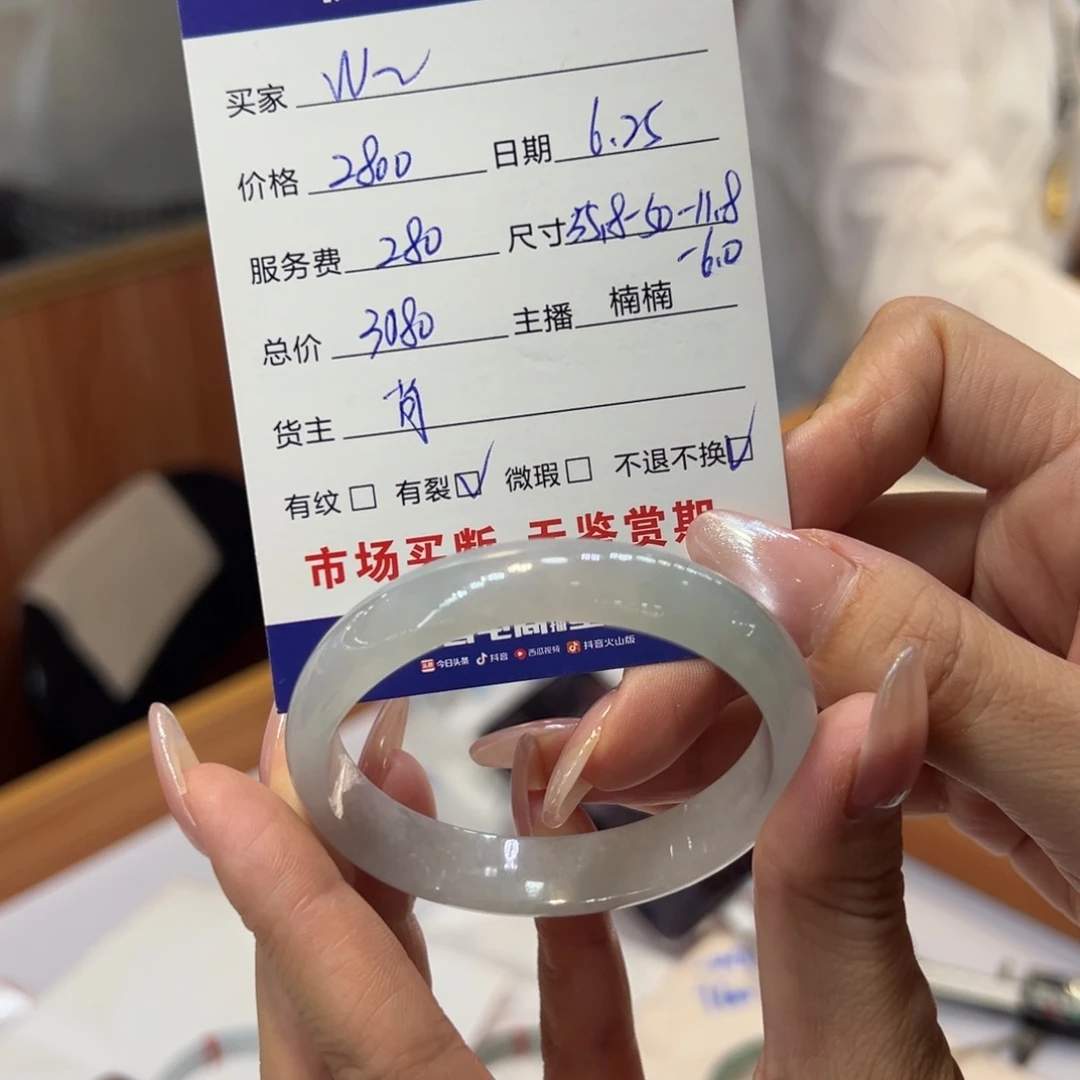 买家 W~
价格 2800 日期 6.25
服务费 280 尺寸 55.8-50-11.8
-6.0
总价 3080 主播 楠楠
货主 肖
有纹 有裂 ✓ 微瑕 不退不换 ✓
市场买断 无鉴赏期
今日头条 抖音 西瓜视频 抖音火山版